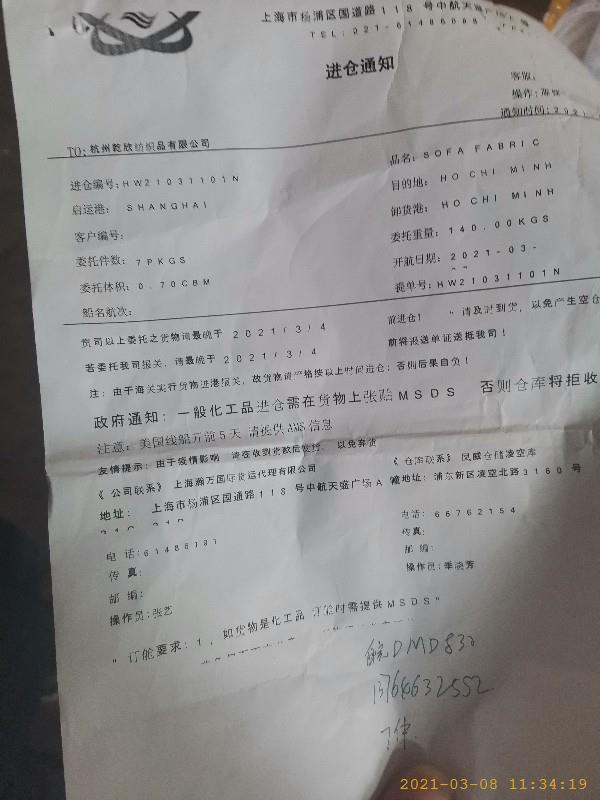 上海市杨浦区国道路118 号中航天盛广场
TEL: 021-61486098
进仓通知
客服:
操作:
通知时间: 2021
TO: 杭州乾欣纺织品有限公司
品名: SOFA FABRIC
进仓编号: HW21031101N
目的地: HO CHI MINH
启运港: SHANGHAI
卸货港: HO CHI MINH
客户编号:
委托重量: 140.00KGS
委托件数: 7PKGS
开航日期: 2021-03-
委托体积: 0.70CBM
提单号: HW21031101N
船名航次:
贵司以上委托之货物请最晚于 2021/3/4 前进仓! "请及时到货,以免产生空仓
若委托我司报关,请最晚于 2021/3/4 前将报送单证送抵我司!
注: 由于海关实行货物进港报关,故货物请严格按以上时间进仓;否则后果自负!
政府通知:一般化工品进仓需在货物上张贴MSDS 否则仓库将拒收
注意: 美国线船开前5天 请提供AMS信息
友情提示: 由于疫情影响 请在收到货款后发行, 以免弃货
《公司联系》上海瀚万国际货运代理有限公司
《仓库联系》凤威仓储凌空库
地址: 上海市杨浦区国道路118 号中航天盛广场A
地址: 浦东新区凌空北路3160 号
电话: 61486191
电话: 66762154
传真:
传真:
邮编:
邮编:
操作员: 张艺
操作员: 季晓芳
"订舱要求: 1, 如货物是化工品 订舱时需提供MSDS"
皖DMD830
7件
2021-03-08 11:34:19